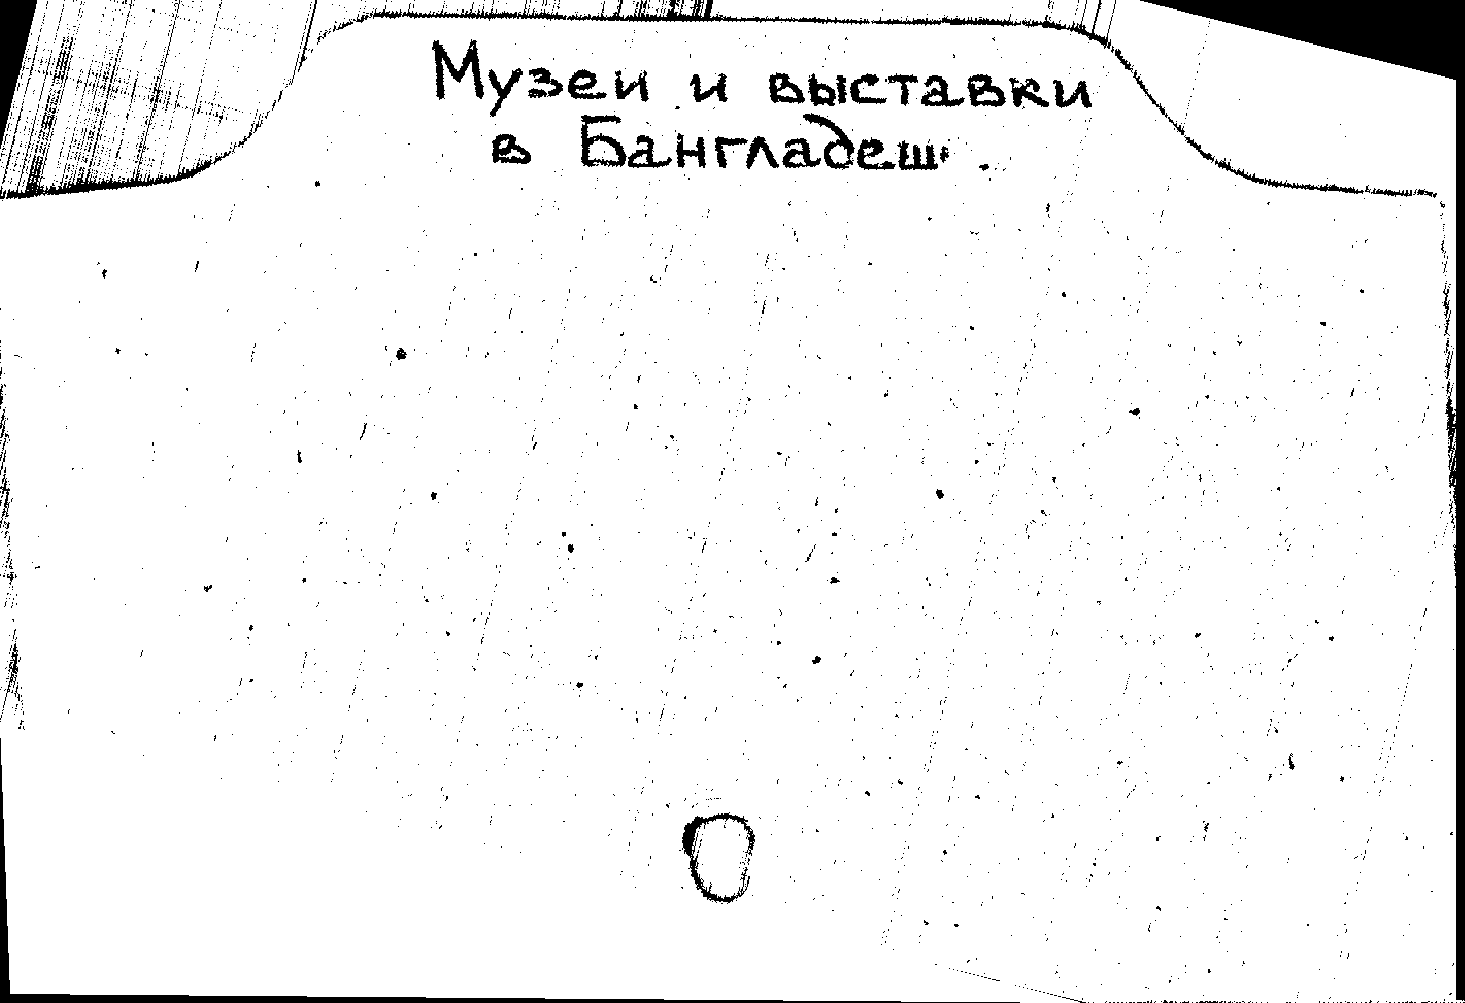 Музеи и выставки
в Бангладеш.